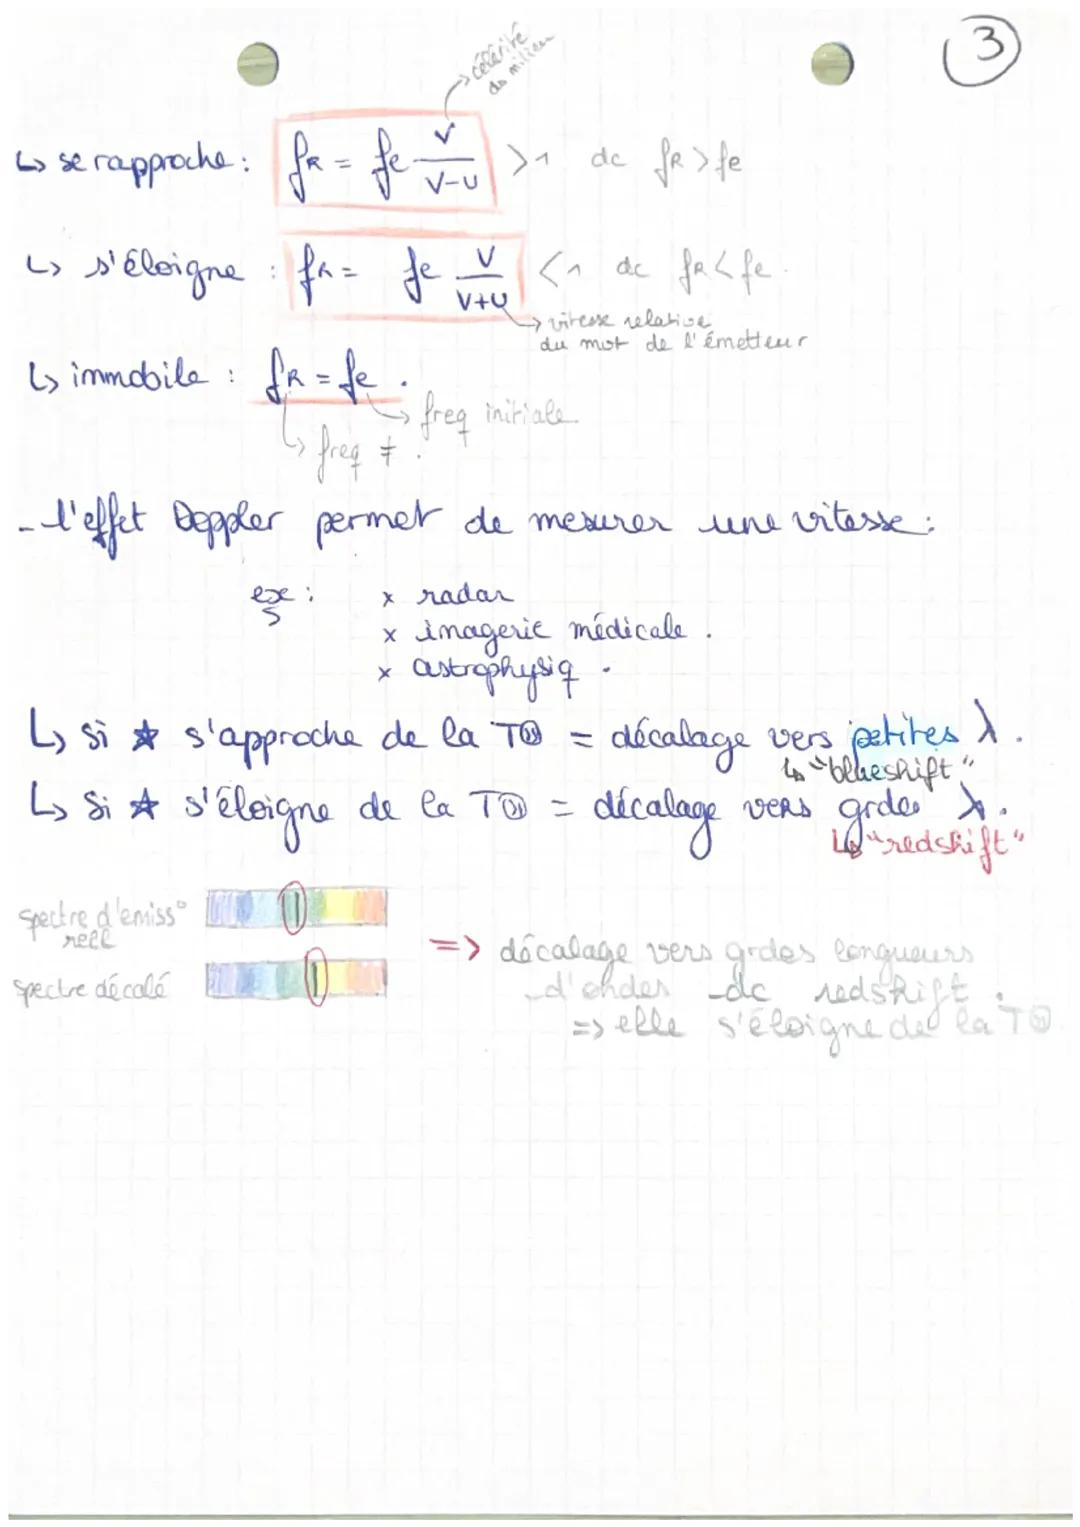 3
célérité
du milieu
↳ se rapproche : fR = fe V/(V-U) >1 dc fR > fe
↳ s'éloigne : fR = fe V/(V+U) <1 dc fR < fe.
→ vitesse relative
du mvt de l'émetteur
↳ immobile : fR = fe.
→ freq initiale
↳ freq ≠.
- l'effet Doppler permet de mesurer une vitesse :
exe : x radar
x imagerie médicale.
x astrophysiq.
↳ Si ☆ s'approche de la T = décalage vers petites λ.
↳ "blueshift"
↳ Si ☆ s'éloigne de la T = décalage vers grdes λ.
↳ "redshift"
spectre d'émiss°
réel
spectre décalé
=> décalage vers grdes longueurs
d'ondes - dc redshift.
=> elle s'éloigne de la T